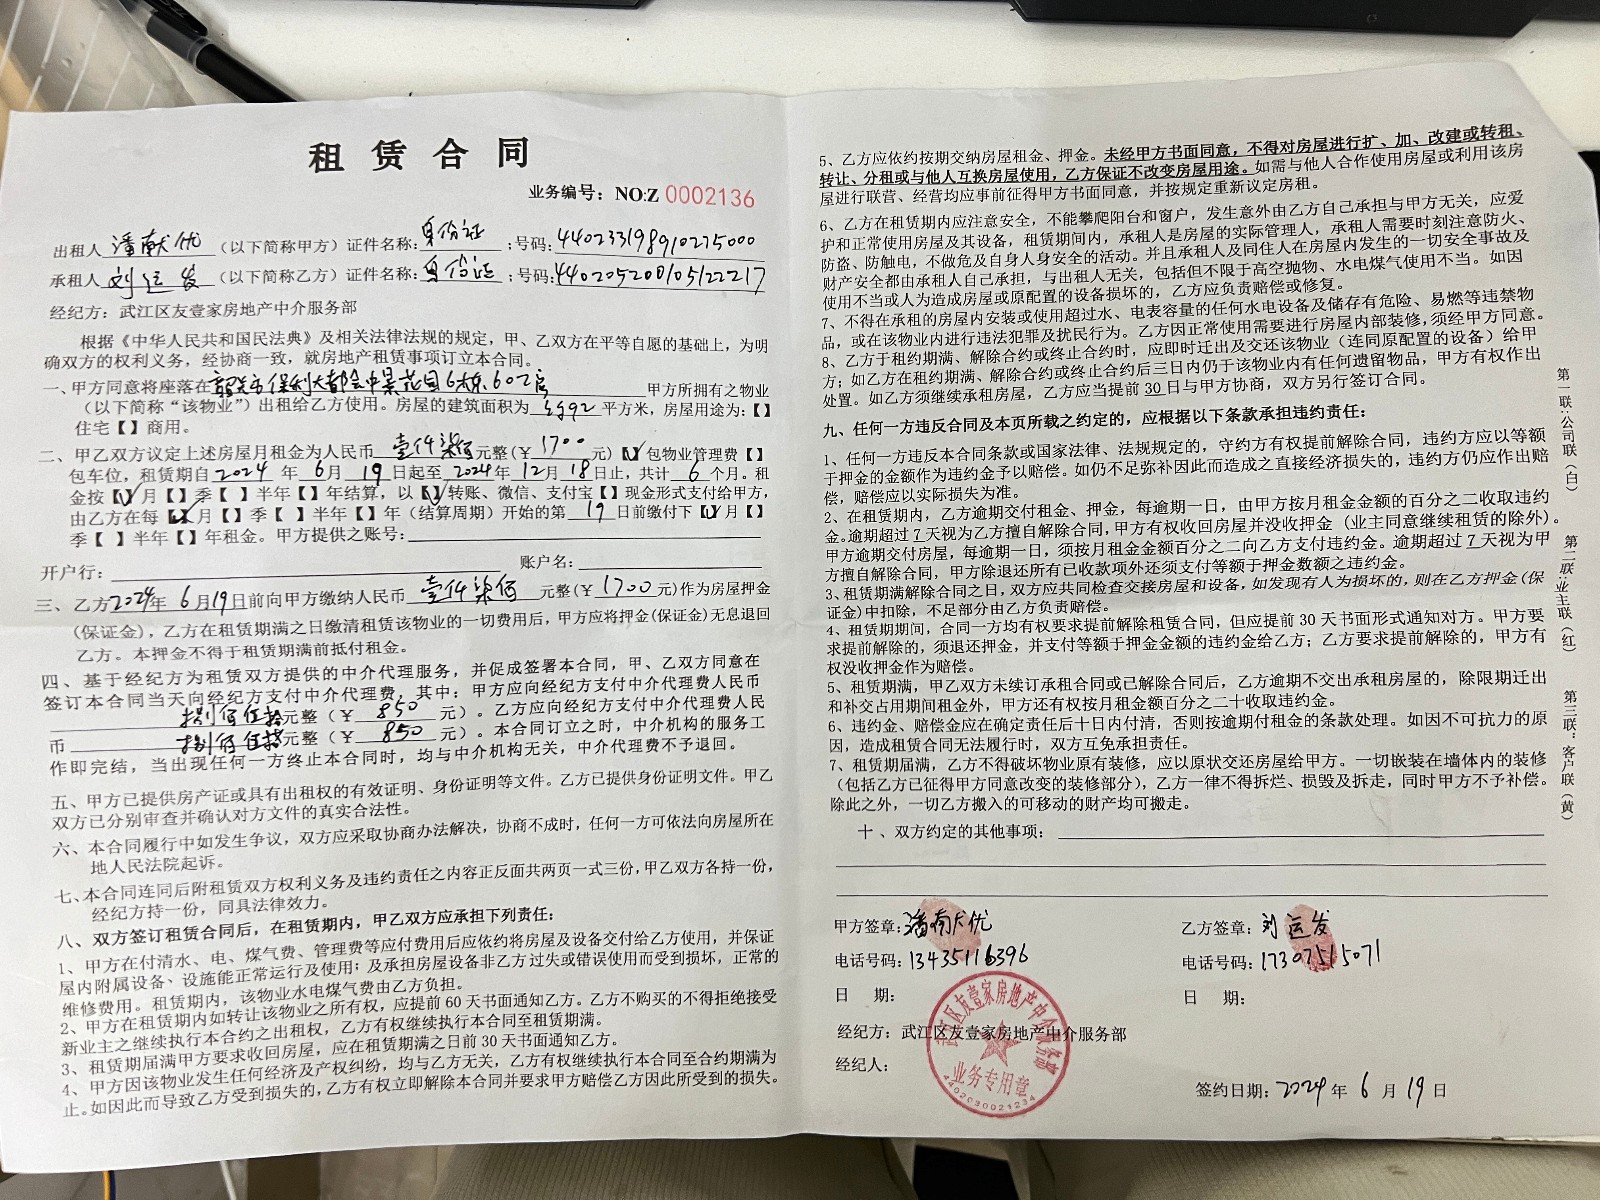 租赁合同
业务编号：NO:Z 0002136
出租人 潘献优 （以下简称甲方）证件名称：身份证 ；号码：440233198910275000
承租人 刘运发 （以下简称乙方）证件名称：身份证 ；号码：440205200105122217
经纪方：武江区友壹家房地产中介服务部
根据《中华人民共和国民法典》及相关法律法规的规定，甲、乙双方在平等自愿的基础上，为明
确双方的权利义务，经协商一致，就房地产租赁事项订立本合同。
一、甲方同意将座落在 韶关市保利大都会中景花园6栋602房 甲方所拥有之物业
（以下简称“该物业”）出租给乙方使用。房屋的建筑面积为 平方米，房屋用途为：【】
住宅【】商用。
二、甲乙双方议定上述房屋月租金为人民币 壹仟柒佰 元整（￥ 1700 元）【✓】包物业管理费【】
包车位，租赁期自 2024 年 6 月 19 日起至 2024 年 12 月 18 日止，共计 6 个月。租
金按【✓】月【】季【】半年【】年结算，以【✓】转账、微信、支付宝【】现金形式支付给甲方，
由乙方在每【✓】月【】季【】半年【】年（结算周期）开始的第 19 日前缴付下【✓】月【】
季【】半年【】年租金。甲方提供之账号：
开户行： 账户名：
三、乙方 2024 年 6 月 19 日前向甲方缴纳人民币 壹仟柒佰 元整（￥ 1700 元）作为房屋押金
（保证金），乙方在租赁期满之日缴清租赁该物业的一切费用后，甲方应将押金（保证金）无息退回
乙方。本押金不得于租赁期满前抵付租金。
四、基于经纪方为租赁双方提供的中介代理服务，并促成签署本合同，甲、乙双方同意在
签订本合同当天向经纪方支付中介代理费，其中：甲方应向经纪方支付中介代理费人民币
捌佰伍拾 元整（￥ 850 元）。乙方应向经纪方支付中介代理费人民
币 捌佰伍拾 元整（￥ 850 元）。本合同订立之时，中介机构的服务工
作即完结，当出现任何一方终止本合同时，均与中介机构无关，中介代理费不予退回。
五、甲方已提供房产证或具有出租权的有效证明、身份证明等文件。乙方已提供身份证明文件。甲乙
双方已分别审查并确认对方文件的真实合法性。
六、本合同履行中如发生争议，双方应采取协商办法解决，协商不成时，任何一方可依法向房屋所在
地人民法院起诉。
七、本合同连同后附租赁双方权利义务及违约责任之内容正反面共两页一式三份，甲乙双方各持一份，
经纪方持一份，同具法律效力。
八、双方签订租赁合同后，在租赁期内，甲乙双方应承担下列责任：
1、甲方在付清水、电、煤气费、管理费等应付费用后应依约将房屋及设备交付给乙方使用，并保证
屋内附属设备、设施能正常运行及使用；及承担房屋设备非乙方过失或错误使用而受到损坏，正常的
维修费用。租赁期内，该物业水电煤气费由乙方负担。
2、甲方在租赁期内如转让该物业之所有权，应提前60天书面通知乙方。乙方不购买的不得拒绝接受
新业主之继续执行本合约之出租权，乙方有权继续执行本合同至租赁期满。
3、租赁期届满甲方要求收回房屋，应在租赁期满之日前30天书面通知乙方。
4、甲方因该物业发生任何经济及产权纠纷，均与乙方无关，乙方有权继续执行本合同至合约期满为
止。如因此而导致乙方受到损失的，乙方有权立即解除本合同并要求甲方赔偿乙方因此所受到的损失。
5、乙方应依约按期交纳房屋租金、押金。未经甲方书面同意，不得对房屋进行扩、加、改建或转租、
转让、分租或与他人互换房屋使用，乙方保证不改变房屋用途。如需与他人合作使用房屋或利用该房
屋进行联营、经营均应事前征得甲方书面同意，并按规定重新议定房租。
6、乙方在租赁期内应注意安全，不能攀爬阳台和窗户，发生意外由乙方自己承担与甲方无关，应爱
护和正常使用房屋及其设备，租赁期间内，承租人是房屋的实际管理人，承租人需要时刻注意防火、
防盗、防触电，不做危及自身人身安全的活动。并且承租人及同住人在房屋内发生的一切安全事故及
财产安全都由承租人自己承担，与出租人无关，包括但不限于高空抛物、水电煤气使用不当。如因
使用不当或人为造成房屋或原配置的设备损坏的，乙方应负责赔偿或修复。
7、不得在承租的房屋内安装或使用超过水、电表容量的任何水电设备及储存有危险、易燃等违禁物
品，或在该物业内进行违法犯罪及扰民行为。乙方因正常使用需要进行房屋内部装修，须经甲方同意。
8、乙方于租约期满、解除合约或终止合约时，应即时迁出及交还该物业（连同原配置的设备）给甲
方；如乙方在租约期满、解除合约或终止合约后三日内仍于该物业内有任何遗留物品，甲方有权作出
处置。如乙方须继续承租房屋，乙方应当提前30日与甲方协商，双方另行签订合同。
九、任何一方违反合同及本页所载之约定的，应根据以下条款承担违约责任：
1、任何一方违反本合同条款或国家法律、法规规定的，守约方有权提前解除合同，违约方应以等额
于押金的金额作为违约金予以赔偿。如仍不足弥补因此而造成之直接经济损失的，违约方仍应作出赔
偿，赔偿应以实际损失为准。
2、在租赁期内，乙方逾期交付租金、押金，每逾期一日，由甲方按月租金金额的百分之二收取违约
金。逾期超过 7 天视为乙方擅自解除合同，甲方有权收回房屋并没收押金（业主同意继续租赁的除外）。
甲方逾期交付房屋，每逾期一日，须按月租金金额百分之二向乙方支付违约金。逾期超过 7 天视为甲
方擅自解除合同，甲方除退还所有已收款项外还须支付等额于押金数额之违约金。
3、租赁期满解除合同之日，双方应共同检查交接房屋和设备，如发现有人为损坏的，则在乙方押金（保
证金）中扣除，不足部分由乙方负责赔偿。
4、租赁期期间，合同一方均有权要求提前解除租赁合同，但应提前30天书面形式通知对方。甲方要
求提前解除的，须退还押金，并支付等额于押金金额的违约金给乙方；乙方要求提前解除的，甲方有
权没收押金作为赔偿。
5、租赁期满，甲乙双方未续订承租合同或已解除合同后，乙方逾期不交出承租房屋的，除限期迁出
和补交占用期间租金外，甲方还有权按月租金额百分之二十收取违约金。
6、违约金、赔偿金应在确定责任后十日内付清，否则按逾期付租金的条款处理。如因不可抗力的原
因，造成租赁合同无法履行时，双方互免承担责任。
7、租赁期届满，乙方不得破坏物业原有装修，应以原状交还房屋给甲方。一切嵌装在墙体内的装修
（包括乙方已征得甲方同意改变的装修部分），乙方一律不得拆烂、损毁及拆走，同时甲方不予补偿。
除此之外，一切乙方搬入的可移动的财产均可搬走。
十、双方约定的其他事项：
甲方签章：潘献优 乙方签章：刘运发
电话号码：13435116396 电话号码：17307515071
日 期： 日 期：
经纪方：武江区友壹家房地产中介服务部
经纪人：
签约日期：2024 年 6 月 19 日
武江区友壹家房地产中介服务部
业务专用章
4402030021234
第一联：公司联（白）
第二联：业主联（红）
第三联：客户联（黄）